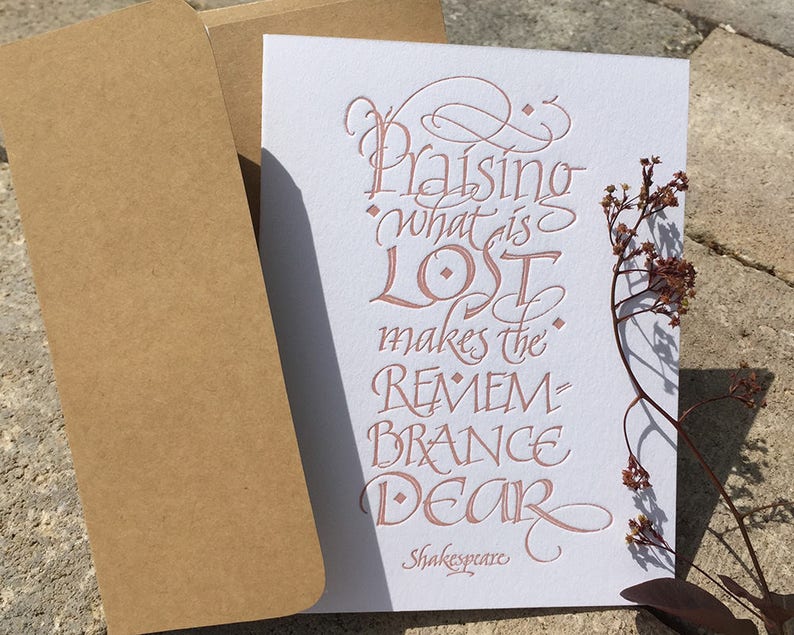 Praising
what is
LOST
makes the
REMEM=
BRANCE
DEAR
Shakespeare